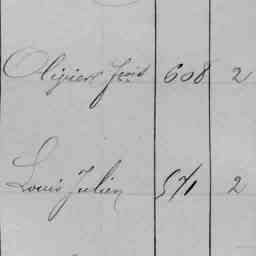 Olivier ferd 608 2
Louis Julien 571 2